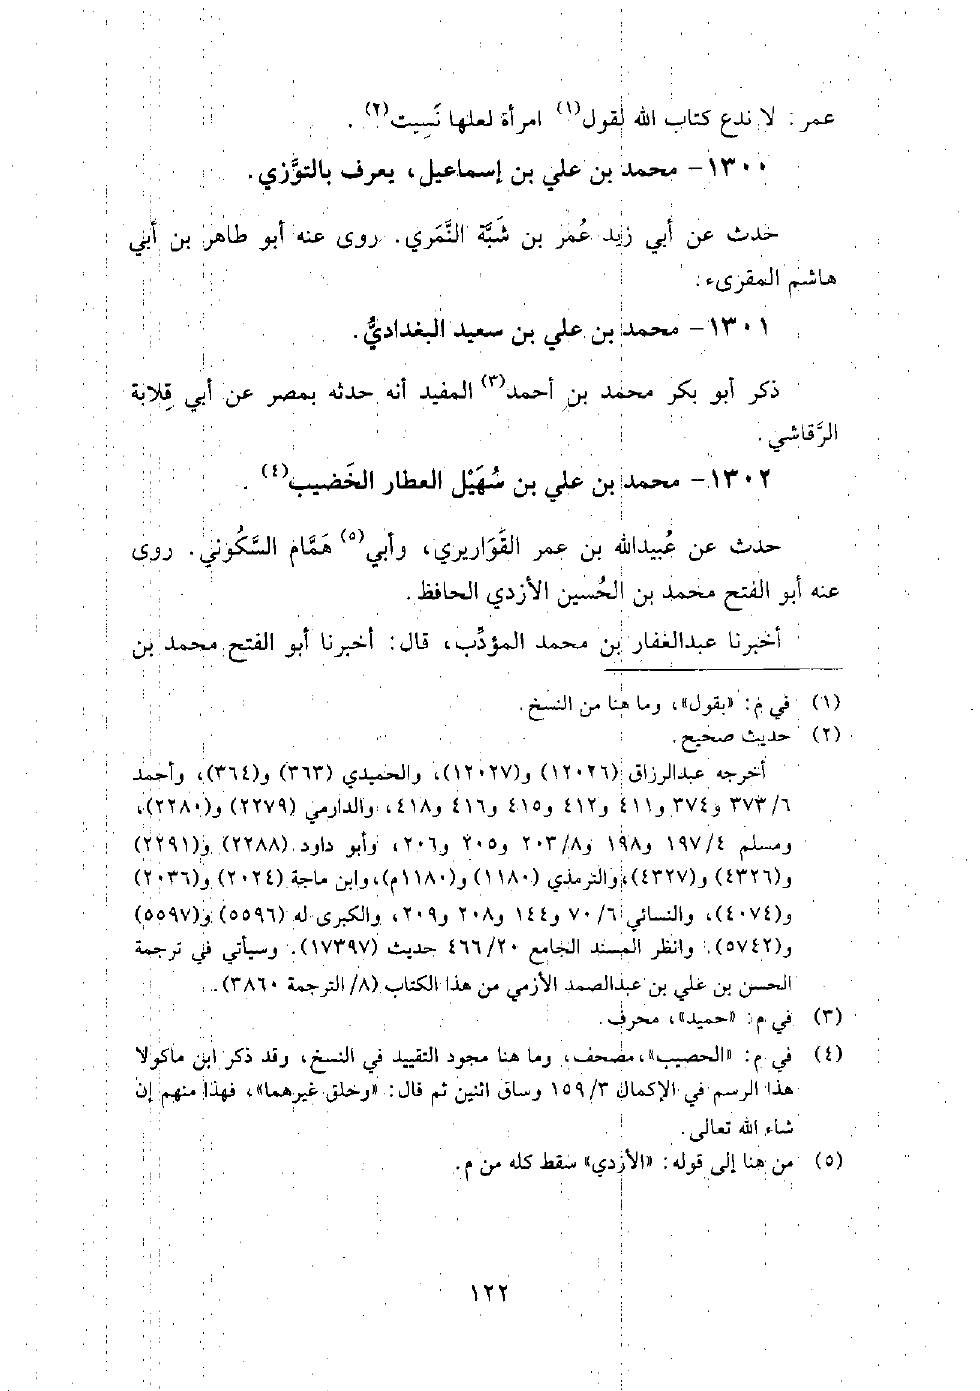 عمر: لا ندع كتاب الله لقول(١) امرأة لعلها نَسِيت(٢).
١٣٠٠- محمد بن علي بن إسماعيل، يعرف بالتوَّزي.
حدث عن أبي زيد عُمر بن شَبَّة النَّمَري. روى عنه أبو طاهر بن أبي
هاشم المقرىء.
١٣٠١- محمد بن علي بن سعيد البغداديُّ.
ذكر أبو بكر محمد بن أحمد(٣) المفيد أنه حدثه بمصر عن أبي قِلابة
الرَّقاشي.
١٣٠٢- محمد بن علي بن سُهَيْل العطار الخَضيب(٤).
حدث عن عُبيدالله بن عمر القَوَاريري، وأبي(٥) هَمَّام السَّكُوني. روى
عنه أبو الفتح محمد بن الحُسين الأزدي الحافظ.
أخبرنا عبدالغفار بن محمد المؤدِّب، قال: أخبرنا أبو الفتح محمد بن
(١) في م: «بقول»، وما هنا من النسخ.
(٢) حديث صحيح.
أخرجه عبدالرزاق (١٢٠٢٦) و(١٢٠٢٧)، والحميدي (٣٦٣) و(٣٦٤)، وأحمد
٦/ ٣٧٣ و٣٧٤ و٤١١ و٤١٢ و٤١٥ و٤١٦ و٤١٨، والدارمي (٢٢٧٩) و(٢٢٨٠)،
ومسلم ٤/ ١٩٧ و١٩٨ و٨/ ٢٠٣ و٢٠٥ و٢٠٦، وأبو داود (٢٢٨٨) و(٢٢٩١)
و(٤٣٢٦) و(٤٣٢٧)، والترمذي (١١٨٠) و(١١٨٠م)، وابن ماجة (٢٠٢٤) و(٢٠٣٦)
و(٤٠٧٤)، والنسائي ٦/ ٧٠ و١٤٤ و٢٠٨ و٢٠٩، والكبرى له (٥٥٩٦) و(٥٥٩٧)
و(٥٧٤٢). وانظر المسند الجامع ٢٠/ ٤٦٦ حديث (١٧٣٩٧). وسيأتي في ترجمة
الحسن بن علي بن عبدالصمد الأزمي من هذا الكتاب (٨/ الترجمة ٣٨٦٠).
(٣) في م: «حميد»، محرف.
(٤) في م: «الحصيب»، مصحف، وما هنا مجود التقييد في النسخ، وقد ذكر ابن ماكولا
هذا الرسم في الإكمال ٣/ ١٥٩ وساق اثنين ثم قال: «وخلق غيرهما»، فهذا منهم إن
شاء الله تعالى.
(٥) من هنا إلى قوله: «الأزدي» سقط كله من م.
١٢٢